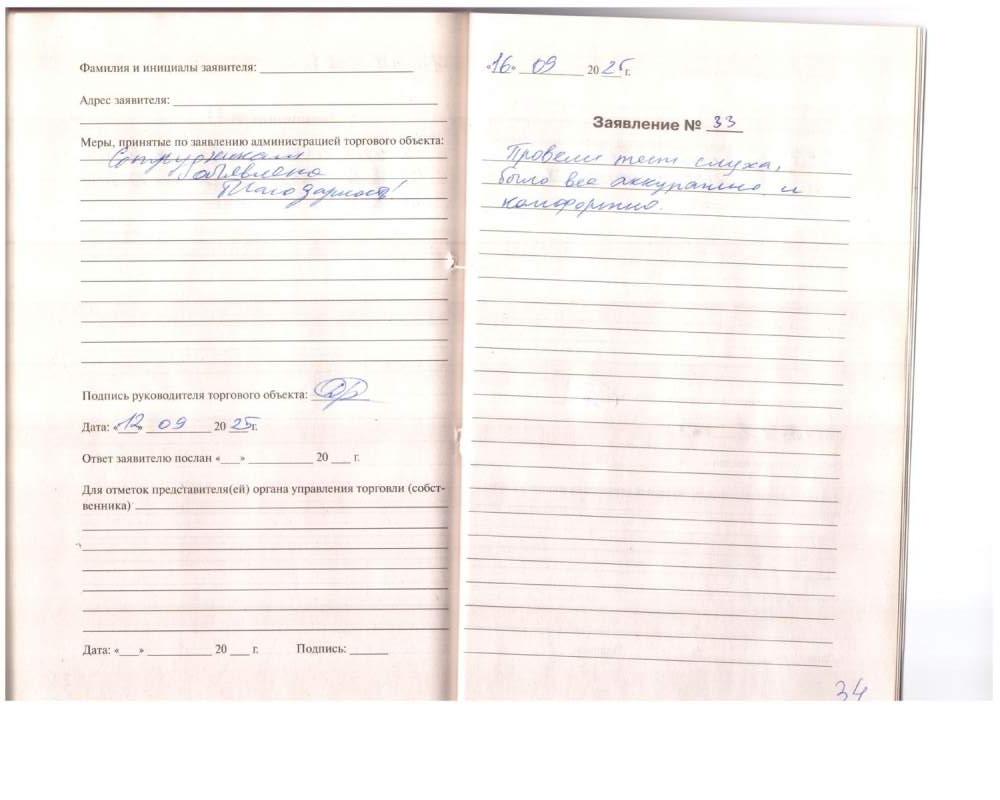 Фамилия и инициалы заявителя:
Адрес заявителя:
Меры, принятые по заявлению администрацией торгового объекта:
Сотрудникам
объявлена
благодарность!
Подпись руководителя торгового объекта:
Дата: «12» 09 2025г.
Ответ заявителю послан «___» ________ 20 ___ г.
Для отметок представителя(ей) органа управления торговли (собст-
венника)
Дата: «___» ________ 20 ___ г. Подпись: ______
«16» 09 2025 г.
Заявление № 33
Провели тест слуха,
было все аккуратно и
комфортно.
34